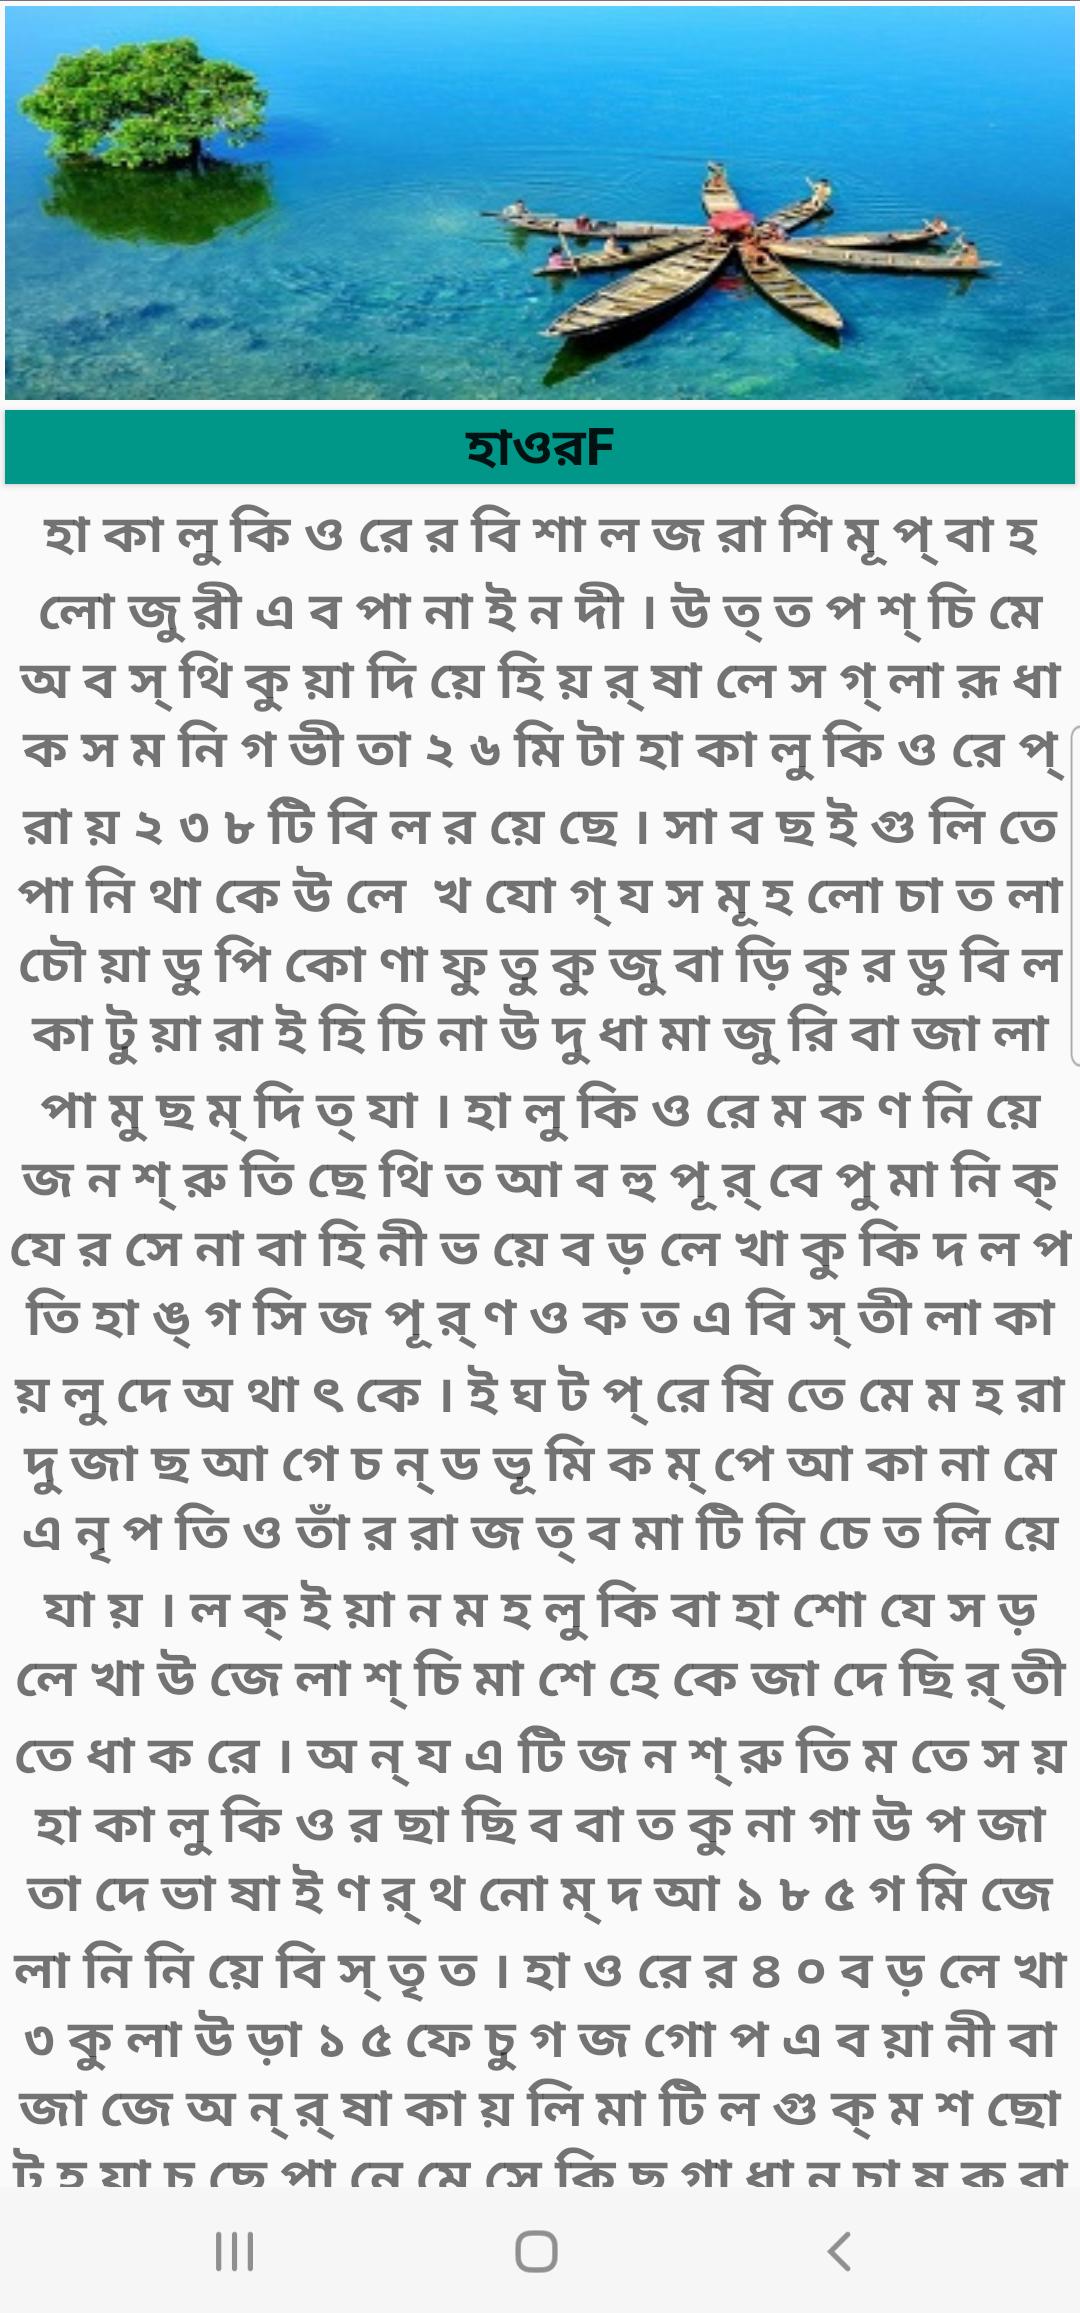 হাওরF
হা কা লু কি ও রে র বি শা ল জ রা শি মূ প্ বা হ
লো জু রী এ ব পা না ই ন দী । উ ত্ ত প শ্ চি মে
অ ব স্ থি কু য়া দি য়ে হি য় র্ ষা লে স গ্ লা রূ ধা
ক স ম নি গ ভী তা ২ ৬ মি টা হা কা লু কি ও রে প্
রা য় ২ ৩ ৮ টি বি ল র য়ে ছে । সা ব ছ ই গু লি তে
পা নি থা কে উ লে খ যো গ্ য স মূ হ লো চা ত লা
চৌ য়া ডু পি কো ণা ফু তু কু জু বা ড়ি কু র ডু বি ল
কা টু য়া রা ই হি চি না উ দু ধা মা জু রি বা জা লা
পা মু ছ ম্ দি ত্ যা । হা লু কি ও রে ম ক ণ নি য়ে
জ ন শ্ রু তি ছে থি ত আ ব হু পূ র্ বে পু মা নি ক্
যে র সে না বা হি নী ভ য়ে ব ড় লে খা কু কি দ ল প
তি হা ঙ্ গ সি জ পূ র্ ণ ও ক ত এ বি স্ তী লা কা
য় লু দে অ থা ৎ কে । ই ঘ ট প্ রে ষি তে মে ম হ রা
দু জা ছ আ গে চ ন্ ড ভূ মি ক ম্ পে আ কা না মে
এ নৃ প তি ও তাঁ র রা জ ত্ ব মা টি নি চে ত লি য়ে
যা য় । ল ক্ ই য়া ন ম হ লু কি বা হা শো যে স ড়
লে খা উ জে লা শ্ চি মা শে হে কে জা দে ছি র্ তী
তে ধা ক রে । অ ন্ য এ টি জ ন শ্ রু তি ম তে স য়
হা কা লু কি ও র ছা ছি ব বা ত কু না গা উ প জা
তা দে ভা ষা ই ণ র্ থ নো ম্ দ আ ১ ৮ ৫ গ মি জে
লা নি নি য়ে বি স্ তৃ ত । হা ও রে র ৪ ০ ব ড় লে খা
৩ কু লা উ ড়া ১ ৫ ফে চু গ জ গো প এ ব য়া নী বা
জা জে অ ন্ র্ ষা কা য় লি মা টি ল গু ক্ ম শ ছো
ট হ য়া চ ছে পা নে মে সে কি ছ গা ধা ন চা ষ ক রা